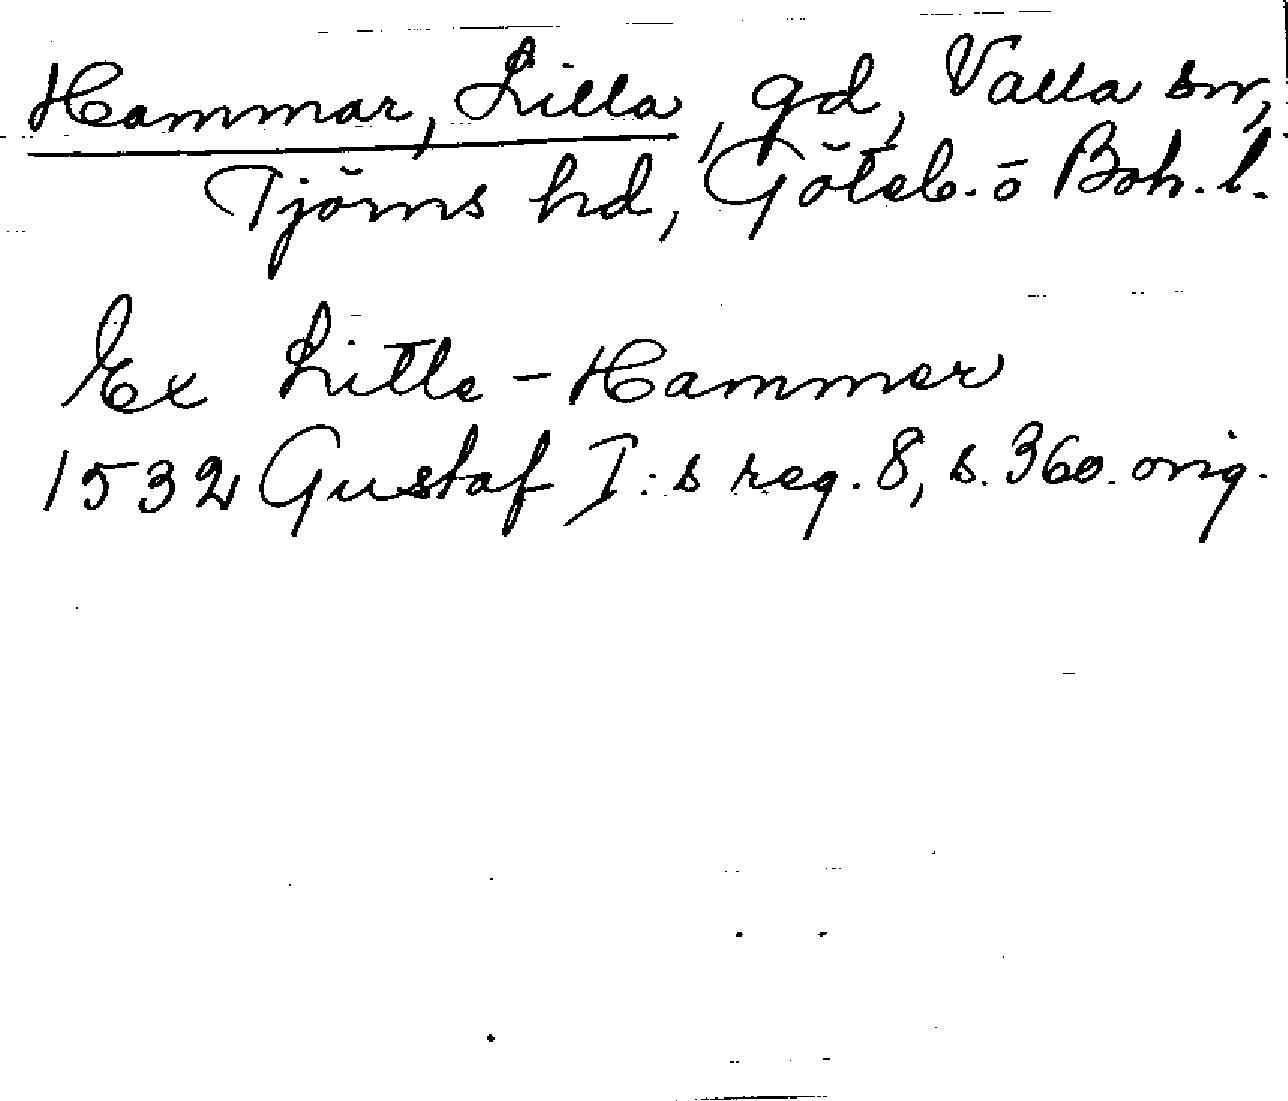 Hammar, Lilla, gd, Valla sn,
Tjörns hd, Göteb. o Boh. l.
Ex Litle - Hammer
1532 Gustaf I:s reg. 8, s. 360. orig.